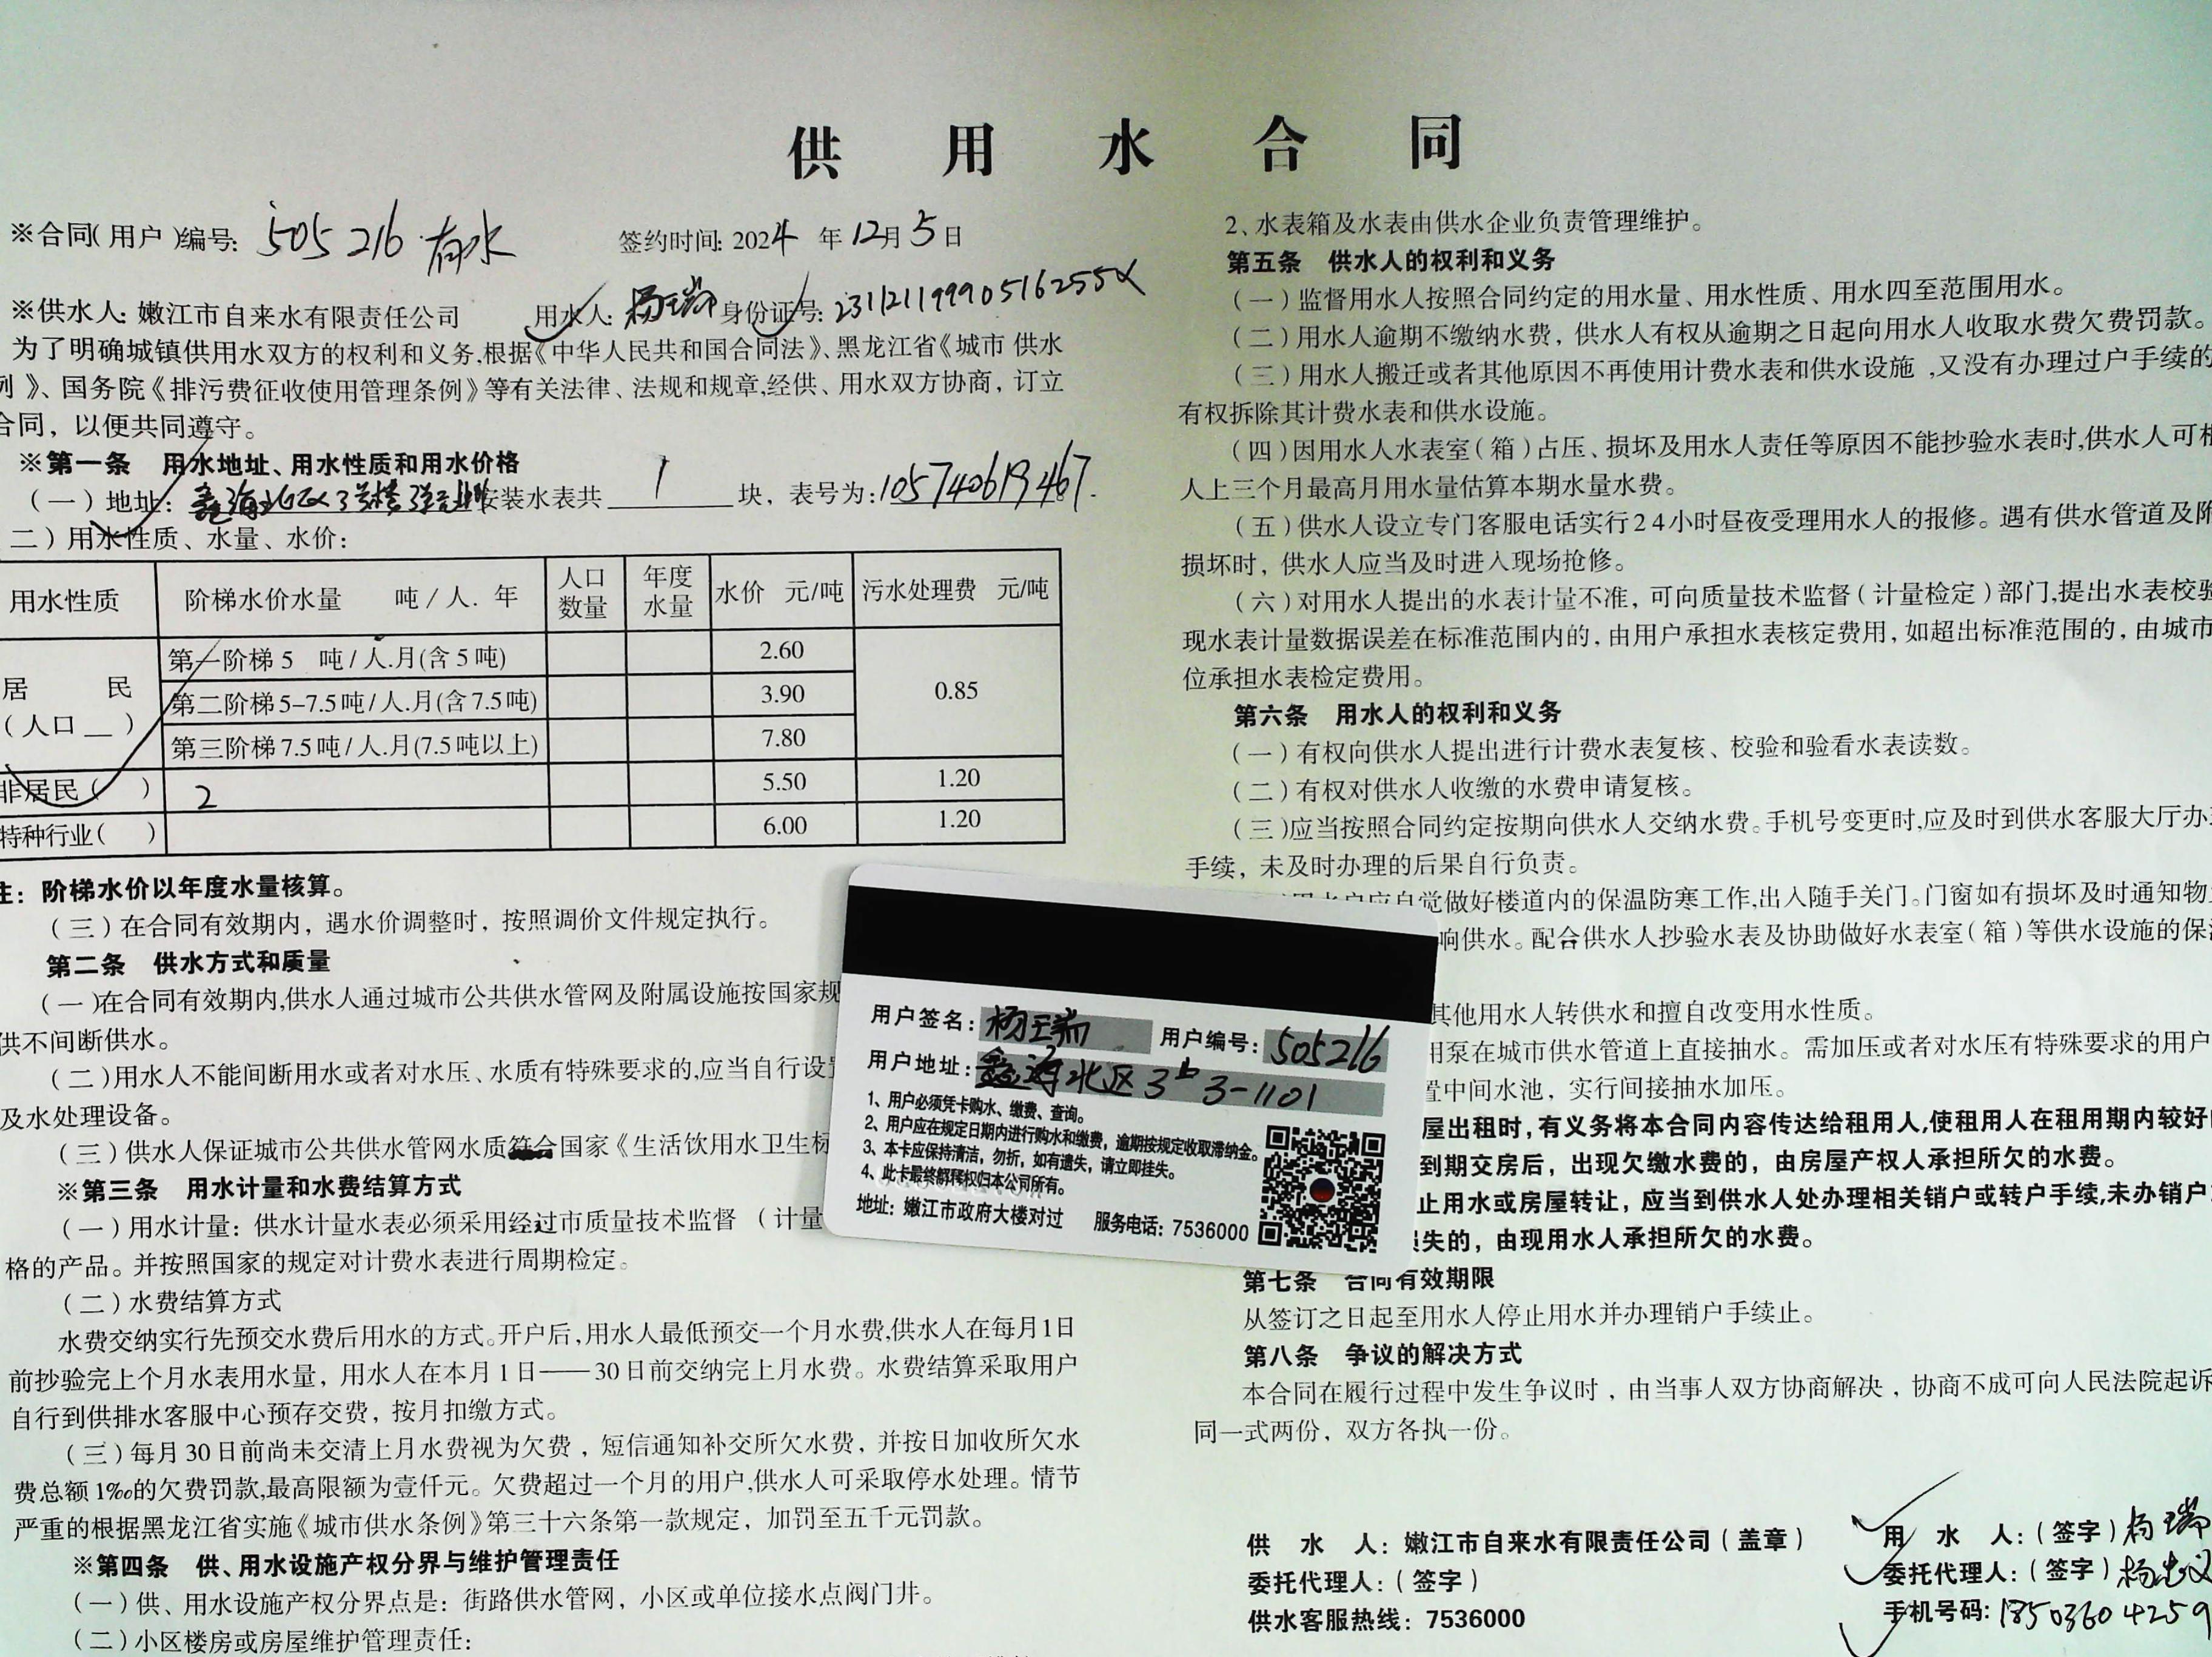 供用水合同
※合同(用户)编号: 505216 有水 签约时间: 2024年12月5日
※供水人: 嫩江市自来水有限责任公司 用水人: 杨瑞 身份证号: 23112119990516255X
为了明确城镇供用水双方的权利和义务,根据《中华人民共和国合同法》、黑龙江省《城市供水
例》、国务院《排污费征收使用管理条例》等有关法律、法规和规章,经供、用水双方协商,订立
合同,以便共同遵守。
※第一条 用水地址、用水性质和用水价格
(一)地址: 鑫海北区3号楼 安装水表共 1 块,表号为: 105740619467.
二)用水性质、水量、水价:
用水性质 阶梯水价水量 吨/人.年 人口数量 年度水量 水价 元/吨 污水处理费 元/吨
居民(人口__) 第一阶梯5 吨/人.月(含5吨) 2.60 0.85
第二阶梯5-7.5吨/人.月(含7.5吨) 3.90
第三阶梯7.5吨/人.月(7.5吨以上) 7.80
非居民( ) 2 5.50 1.20
特种行业( ) 6.00 1.20
注:阶梯水价以年度水量核算。
(三)在合同有效期内,遇水价调整时,按照调价文件规定执行。
第二条 供水方式和质量
(一)在合同有效期内,供水人通过城市公共供水管网及附属设施按国家规
供不间断供水。
(二)用水人不能间断用水或者对水压、水质有特殊要求的,应当自行设置
及水处理设备。
(三)供水人保证城市公共供水管网水质符合国家《生活饮用水卫生标
※第三条 用水计量和水费结算方式
(一)用水计量:供水计量水表必须采用经过市质量技术监督(计量
格的产品。并按照国家的规定对计费水表进行周期检定。
(二)水费结算方式
水费交纳实行先预交水费后用水的方式。开户后,用水人最低预交一个月水费,供水人在每月1日
前抄验完上个月水表用水量,用水人在本月1日——30日前交纳完上月水费。水费结算采取用户
自行到供排水客服中心预存交费,按月扣缴方式。
(三)每月30日前尚未交清上月水费视为欠费,短信通知补交所欠水费,并按日加收所欠水
费总额1‰的欠费罚款,最高限额为壹仟元。欠费超过一个月的用户,供水人可采取停水处理。情节
严重的根据黑龙江省实施《城市供水条例》第三十六条第一款规定,加罚至五千元罚款。
※第四条 供、用水设施产权分界与维护管理责任
(一)供、用水设施产权分界点是:街路供水管网,小区或单位接水点阀门井。
(二)小区楼房或房屋维护管理责任:
2、水表箱及水表由供水企业负责管理维护。
第五条 供水人的权利和义务
(一)监督用水人按照合同约定的用水量、用水性质、用水四至范围用水。
(二)用水人逾期不缴纳水费,供水人有权从逾期之日起向用水人收取水费欠费罚款。
(三)用水人搬迁或者其他原因不再使用计费水表和供水设施,又没有办理过户手续的
有权拆除其计费水表和供水设施。
(四)因用水人水表室(箱)占压、损坏及用水人责任等原因不能抄验水表时,供水人可根
人上三个月最高月用水量估算本期水量水费。
(五)供水人设立专门客服电话实行24小时昼夜受理用水人的报修。遇有供水管道及附
损坏时,供水人应当及时进入现场抢修。
(六)对用水人提出的水表计量不准,可向质量技术监督(计量检定)部门,提出水表校验
现水表计量数据误差在标准范围内的,由用户承担水表核定费用,如超出标准范围的,由城市
位承担水表检定费用。
第六条 用水人的权利和义务
(一)有权向供水人提出进行计费水表复核、校验和验看水表读数。
(二)有权对供水人收缴的水费申请复核。
(三)应当按照合同约定按期向供水人交纳水费。手机号变更时,应及时到供水客服大厅办理
手续,未及时办理的后果自行负责。
用水户应自觉做好楼道内的保温防寒工作,出入随手关门。门窗如有损坏及时通知物
响供水。配合供水人抄验水表及协助做好水表室(箱)等供水设施的保
其他用水人转供水和擅自改变用水性质。
用泵在城市供水管道上直接抽水。需加压或者对水压有特殊要求的用户
置中间水池,实行间接抽水加压。
屋出租时,有义务将本合同内容传达给租用人,使租用人在租用期内较好
到期交房后,出现欠缴水费的,由房屋产权人承担所欠的水费。
止用水或房屋转让,应当到供水人处办理相关销户或转户手续,未办销户
失的,由现用水人承担所欠的水费。
第七条 合同有效期限
从签订之日起至用水人停止用水并办理销户手续止。
第八条 争议的解决方式
本合同在履行过程中发生争议时,由当事人双方协商解决,协商不成可向人民法院起诉
同一式两份,双方各执一份。
供水人:嫩江市自来水有限责任公司(盖章)
委托代理人:(签字)
供水客服热线:7536000
用水人:(签字)杨瑞
委托代理人:(签字)杨忠义
手机号码: 18503604259
用户签名: 杨瑞 用户编号: 505216
用户地址: 鑫海北区3# 3-1101
1、用户必须凭卡购水、缴费、查询。
2、用户应在规定日期内进行购水和缴费,逾期按规定收取滞纳金。
3、本卡应保持清洁,勿折,如有遗失,请立即挂失。
4、此卡最终解释权归本公司所有。
地址:嫩江市政府大楼对过 服务电话:7536000